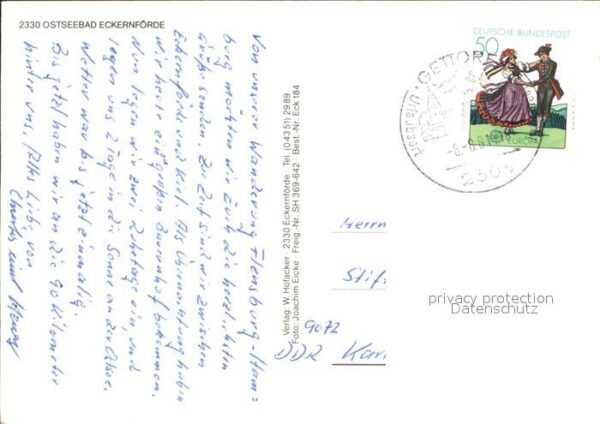 2330 OSTSEEBAD ECKERNFÖRDE
Von unserer Wanderung Flensburg-Ham=
burg möchten wir Euch die herzlichsten
Grüße senden. Zur Zeit sind wir zwischen
Eckernförde und Kiel. Als Übernachtung haben
wir heute ein großen Bauernhof bekommen.
Nun legen wir zwei Ruhetage ein, und
legen uns 2 Tage in die Sonne an der Ostsee.
Wetter war bis jetzt einmalig.
Bis jetzt haben wir an die 90 Kilometer
hinter uns. Alles Liebe, von
und
Verlag: W. Hofacker 2330 Eckernförde Tel. (0 43 51) 29 89
Foto: Joachim Eicke Freig.-Nr. SH 369-642 Best.-Nr. Eck 184
DEUTSCHE BUNDESPOST
50
EUROPA
GETTORF
2303
Herrn
Stif
9072
DDR Karl
privacy protection
Datenschutz